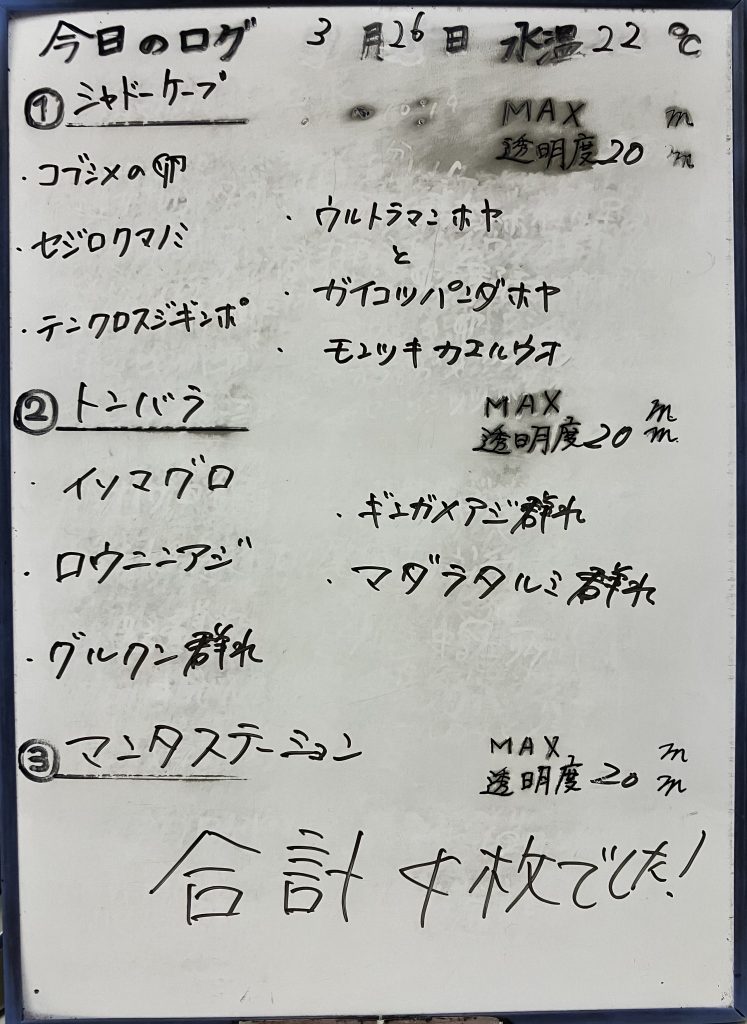 今日のログ 3月26日 水温22℃
① シャドーケーブ
MAX m
透明度20m
・コブシメの卵
・セジロクマノミ
・テンクロスジギンポ
・ウルトラマンホヤ
と
・ガイコツパンダホヤ
・モンツキカエルウオ
② トンバラ
MAX m
透明度20m
・イソマグロ
・ロウニンアジ
・グルクン群れ
・ギンガメアジ群れ
・マダラタルミ群れ
③ マンタステーション
MAX m
透明度20m
合計4枚でした!